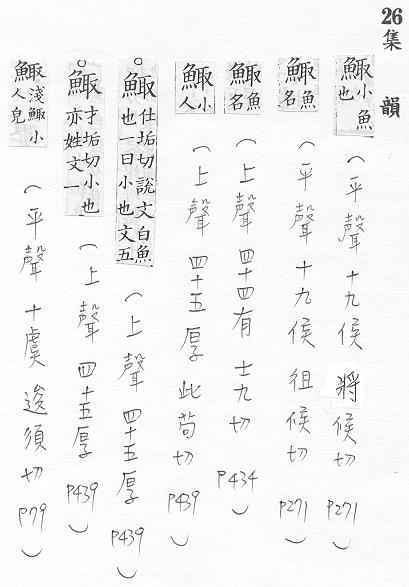 26 集韻
鯫小魚也(平聲 十九侯 將侯切 P271)
鯫魚名(平聲 十九侯 徂侯切 P271)
鯫魚名(上聲 四十四有 士九切 P434)
鯫小人(上聲 四十五厚 此苟切 P439)
。鯫仕垢切說文白魚也一曰小也文五(上聲 四十五厚 P439)
。鯫才垢切小也亦姓文一(上聲 四十五厚 P439)
鯫淺鯫小人皃(平聲 十虞 逡須切 P79)